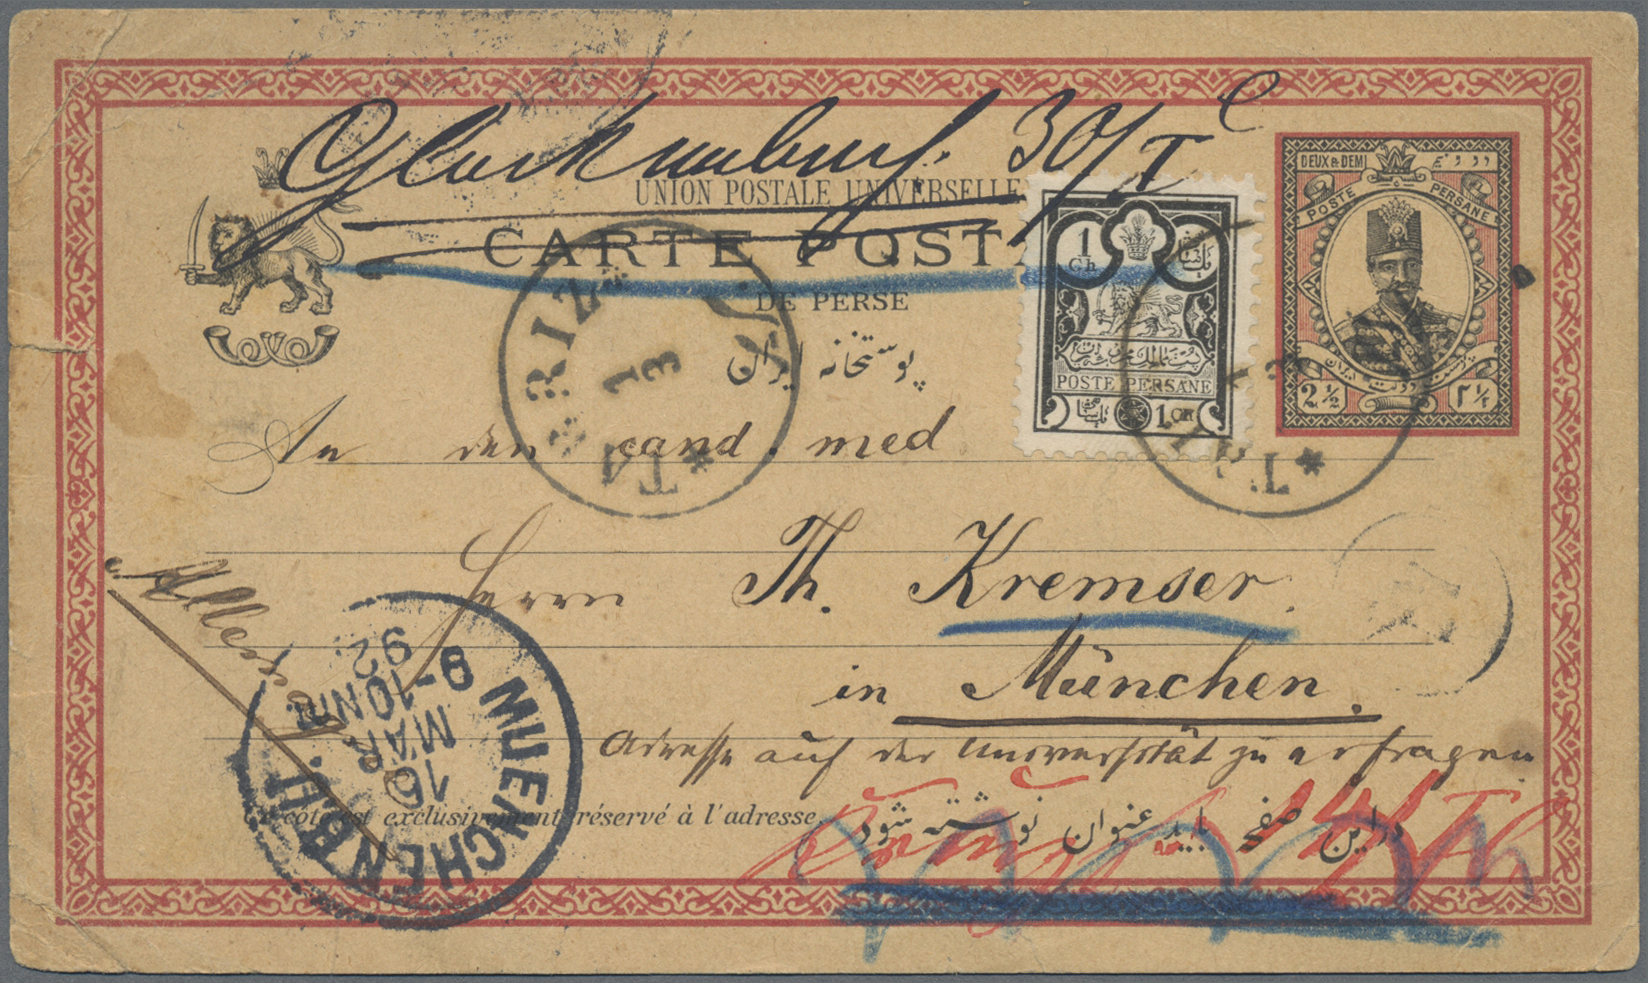 30/I
UNION POSTALE UNIVERSELLE
CARTE POSTA
DE PERSE
پوستخانه ایران
DEUX & DEMI
POSTE PERSANE
2½ ۲½
1 Ch
POSTE PERSANE
1 CH
TABRIZ
13
An den cand. med
Herrn Th. Kremser.
in München.
Adresse auf der Universität zu erfragen
Ce côté est exclusivement réservé à l'adresse.
در این صفحه باید عنوان نوشته شود
MUENCHEN B.H.
16 MÄR 92
9-10 NM.